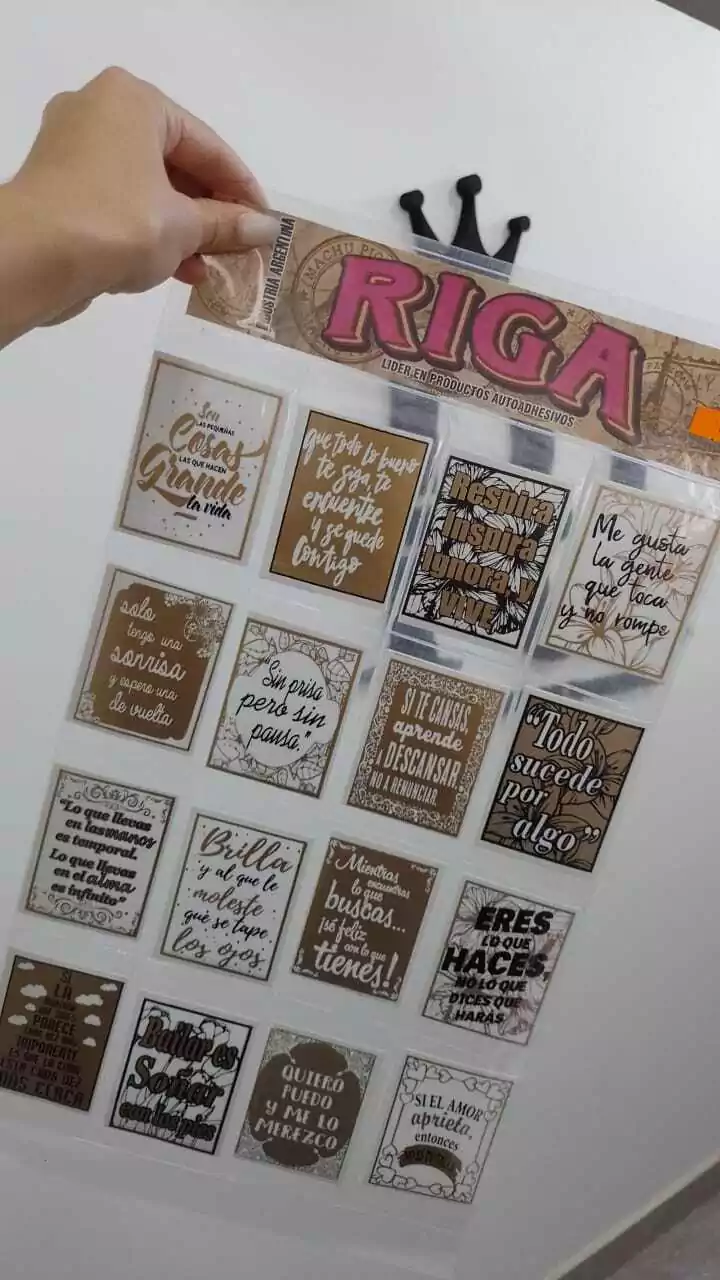 INDUSTRIA ARGENTINA
MACHU PIC
RIGA
LIDER EN PRODUCTOS AUTOADHESIVOS
Son
LAS PEQUEÑAS
Cosas
LAS QUE HACEN
Grande
la vida
que todo lo bueno
te siga, te
encuentre
y se quede
contigo
Respira
Inspira
Ignora y
VIVE
Me gusta
la gente
que toca
y no rompe
solo
tengo una
sonrisa
y espero una
de vuelta
"Sin prisa
pero sin
pausa."
SI TE CANSAS,
aprende
A DESCANSAR,
NO A RENUNCIAR.
"Todo
sucede
por
algo"
"Lo que llevas
en las manos
es temporal.
Lo que llevas
en el alma
es infinito"
Brilla
y al que le
moleste
que se tape
los ojos
Mientras
encuentras
lo que
buscas...
¡sé feliz
con lo que
tienes!
ERES
LO QUE
HACES,
NO LO QUE
DICES QUE
HARÁS.
SI
LA
PARECE
IMPONENTE
ES QUE LA CIMA
ESTÁ CADA VEZ
MÁS CERCA
Bailar es
Soñar
con los pies
QUIERO
PUEDO
Y ME LO
MEREZCO
SI EL AMOR
aprieta,
entonces